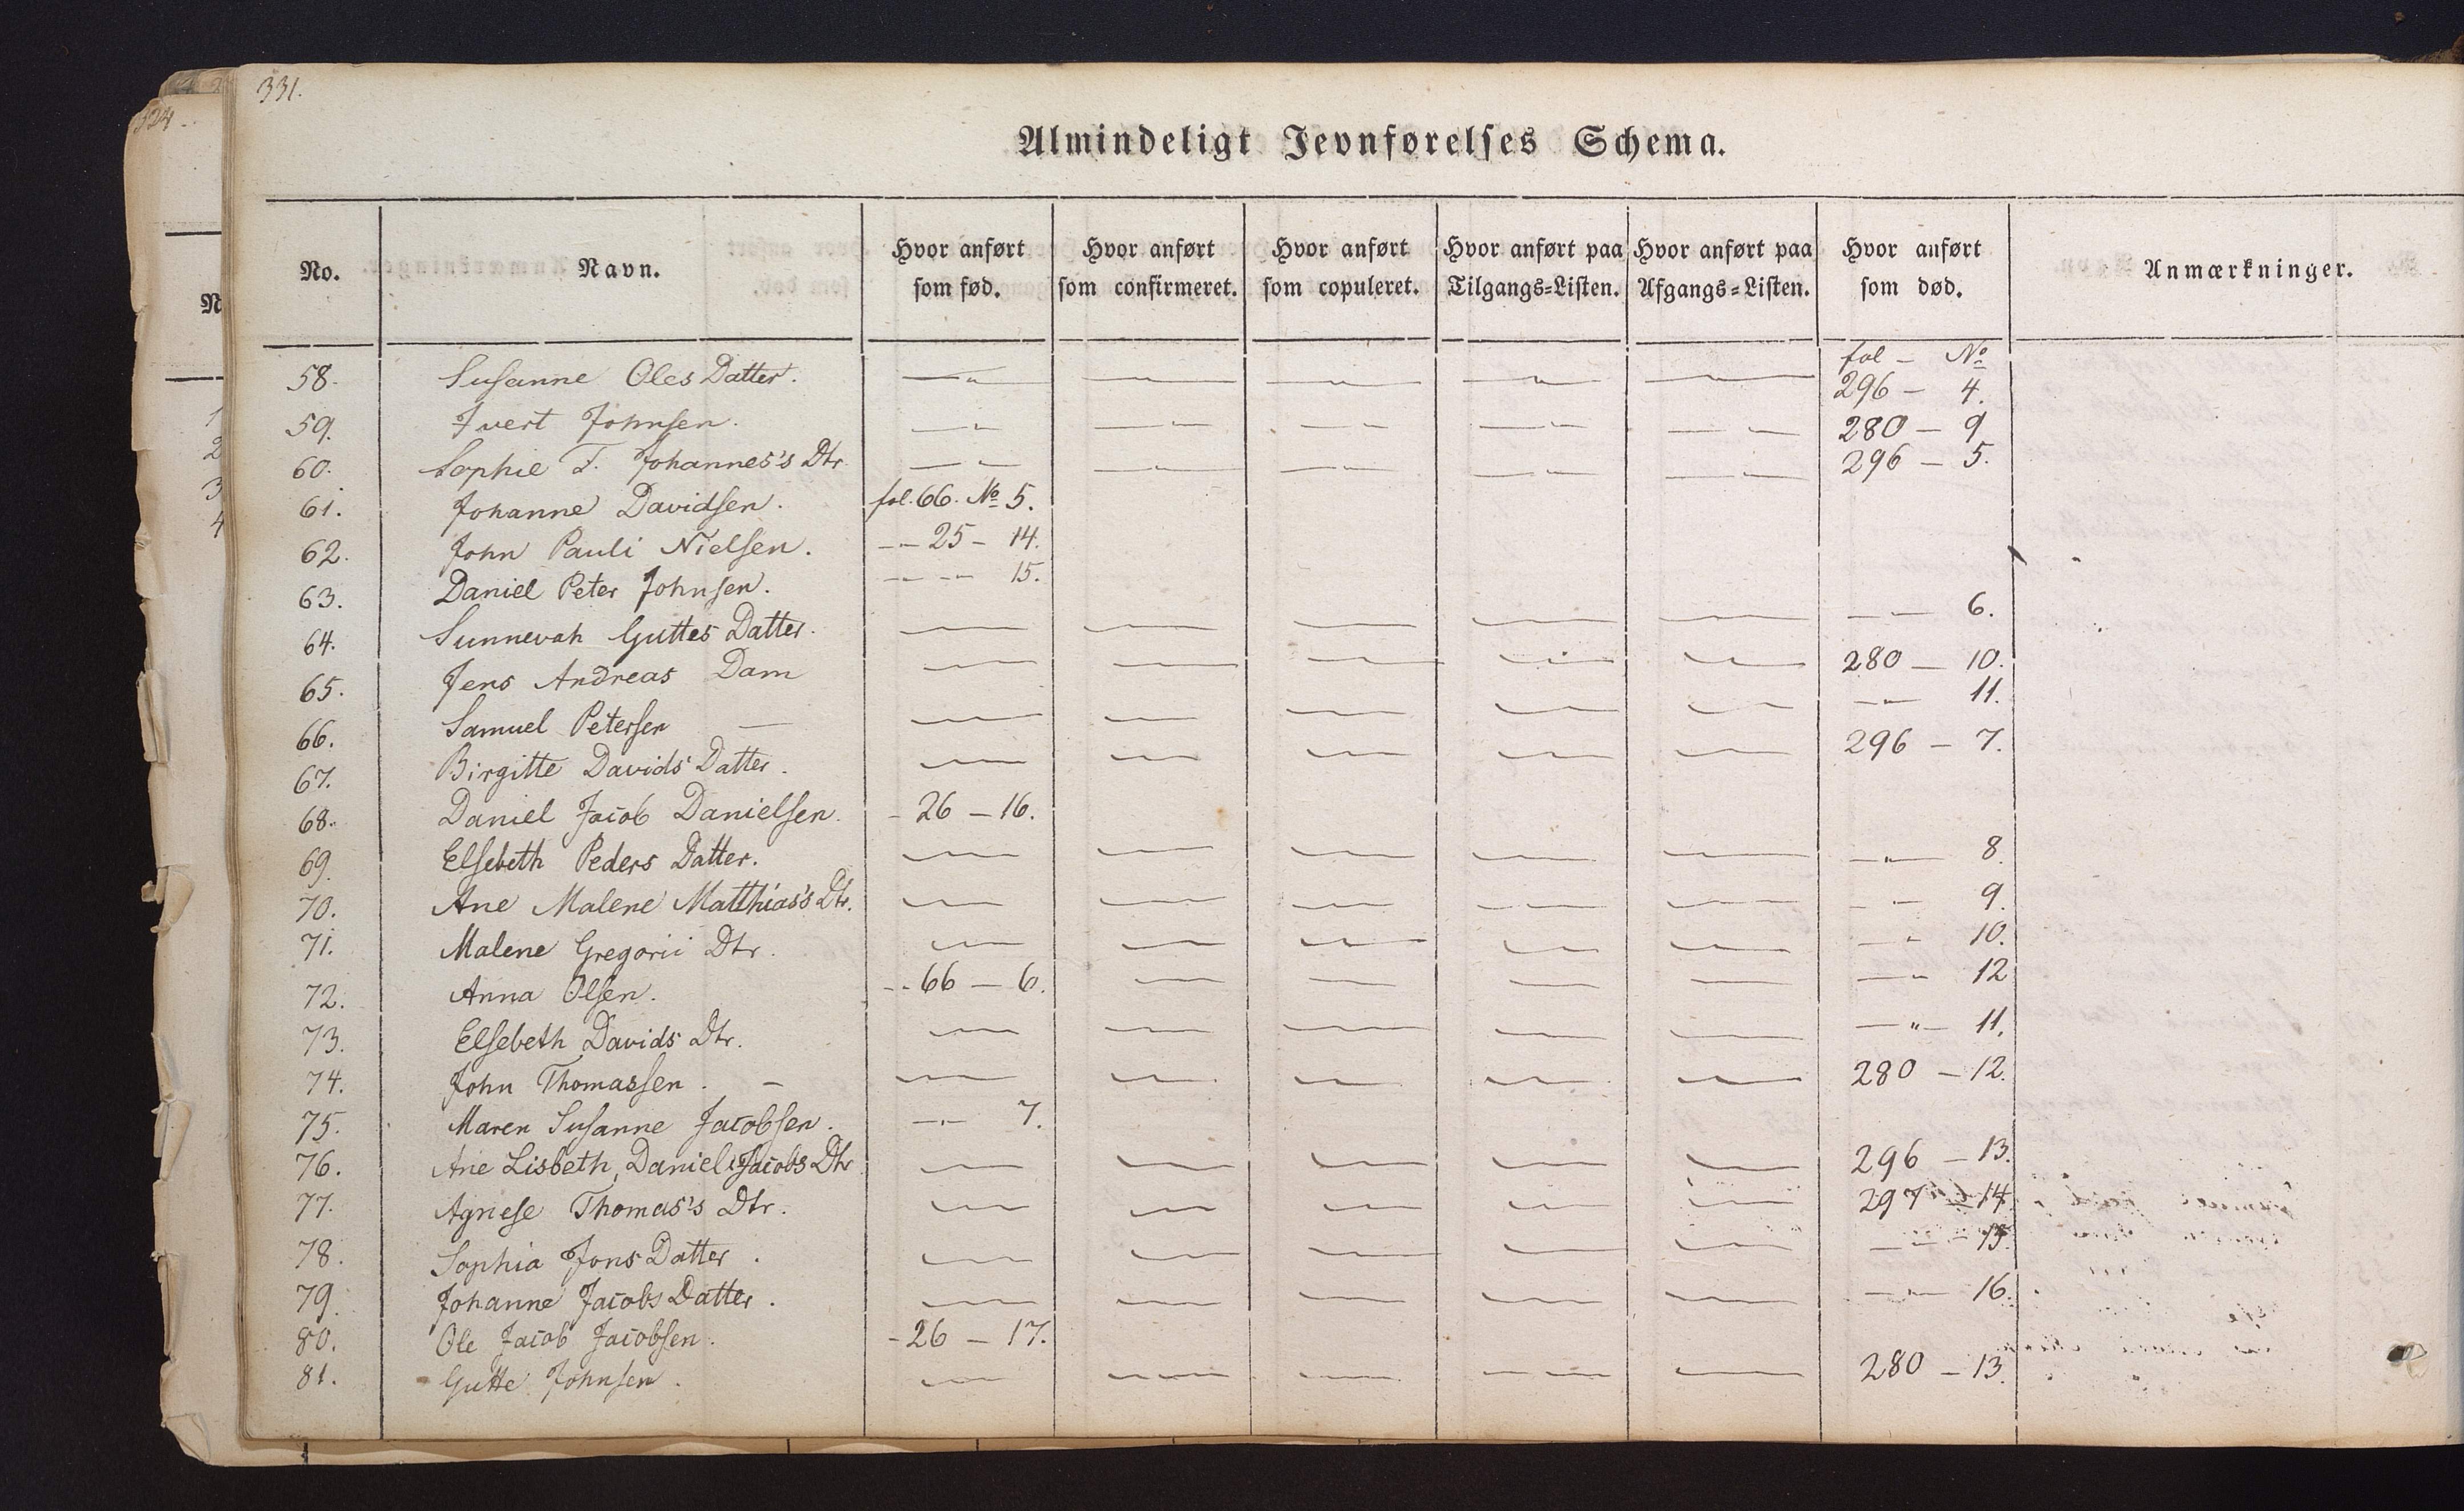 331.
324
Almindeligt Jevnførelses Schema.
No. | Navn. | Hvor anført som fød. | Hvor anført som confirmeret. | Hvor anført som copuleret. | Hvor anført paa Tilgangs-Listen. | Hvor anført paa Afgangs-Listen. | Hvor anført som død. | Anmærkninger.
fol – No
58. Susanne Oles Datter. — — — — — 296 – 4.
59. Ivert Johnsen. — — — — — 280 – 9
60. Sophie F. Johannes's Dtr. — — — — — 296 – 5.
61. Johanne Davidsen. fol. 66. No 5.
62. John Pauli Nielsen. — 25 – 14.
63. Daniel Peter Johnsen. — — 15.
64. Sunnevah Guttes Datter. — — — — — — 6.
65. Jens Andreas Dam — — — — — 280 – 10.
66. Samuel Petersen — — — — — — — 11.
67. Birgitte Davids Datter. — — — — — 296 – 7.
68. Daniel Jacob Danielsen. – 26 – 16.
69. Elsebeth Peders Datter. — — — — — — 8.
70. Ane Malene Matthias's Dtr. — — — — — — 9.
71. Malene Gregorii Dtr. — — — — — — 10.
72. Anna Olsen. – 66 – 6. — — — — — 12
73. Elsebeth Davids Dtr. — — — — — — 11.
74. John Thomassen. – — — — — — 280 – 12.
75. Maren Susanne Jacobsen. — 7.
76. Ane Lisbeth, Daniel Jacobs Dtr — — — — — 296 – 13.
77. Agnese Thomas's Dtr. — — — — — 297 – 14.
78. Sophia Jons Datter. — — — — — — 15.
79. Johanne Jacobs Datter. — — — — — — 16.
80. Ole Jacob Jacobsen. – 26 – 17.
81. Gutte Johnsen. — — — — — 280 – 13.